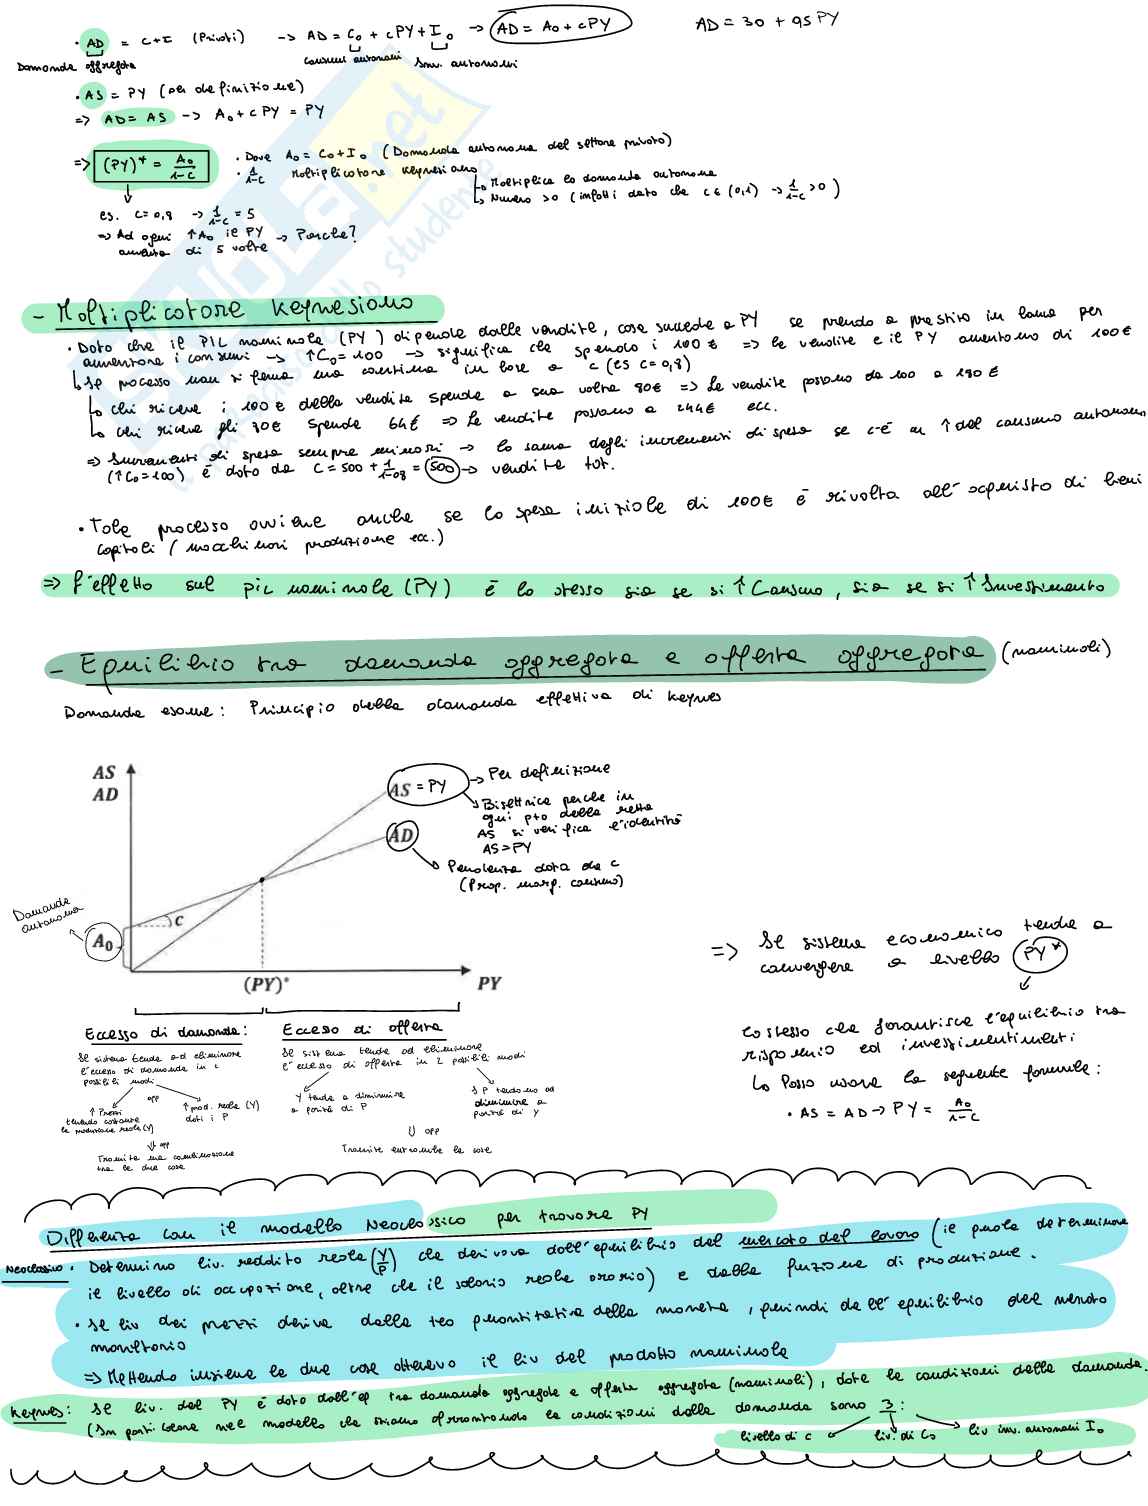 · AD = C+I (Privati) -> AD = C₀ + cPY + I₀ -> AD = A₀ + cPY AD = 30 + 95 PY
Domanda aggregata Consumi autonomi Inv. autonomi
· AS = PY (per definizione)
=> AD = AS -> A₀ + cPY = PY
=> (PY)* = A₀/1-c · Dove A₀ = C₀ + I₀ (Domanda autonoma del settore privato)
· 1/1-c Moltiplicatore keynesiano
Moltiplica la domanda autonoma
Numero >0 (infatti dato che c ∈ (0,1) -> 1/1-c >0)
es. c=0,8 -> 1/1-c = 5
=> Ad ogni ↑A₀ il PY -> Perche?
aumenta di 5 volte
- Moltiplicatore keynesiano
· Dato che il PIL nominale (PY) dipende dalle vendite, cosa succede a PY se prendo a prestito in banca per
aumentare i consumi -> ↑C₀=100 -> significa che spendo i 100€ => le vendite e il PY aumentano di 100€
Il processo non si ferma ma continua in base a c (es c=0,8)
Chi riceve i 100€ della vendita spende a sua volta 80€ => Le vendite passano da 100 a 180€
Chi riceve gli 80€ spende 64€ => Le vendite passano a 244€ ecc.
=> Incrementi di spesa sempre minori -> la somma degli incrementi di spesa se c'è un ↑ del consumo autonomo
(↑C₀=100) è data da C = 500 + 1/1-08 = 500 -> vendite tot.
· Tale processo avviene anche se la spesa iniziale di 100€ è rivolta all'acquisto di beni
capitali (macchinari produzione ecc.)
=> L'effetto sul PIL nominale (PY) è lo stesso sia se si ↑Consumo, sia se si ↑Investimento
- Equilibrio tra domanda aggregata e offerta aggregata (nominali)
Domanda esame: Principio della domanda effettiva di keynes
AS
AD
AS = PY -> Per definizione
Bisettrice perche in
ogni pto della retta
AS si verifica l'identità
AS=PY
AD
Pendenza data da c
(Prop. marg. consumo)
Domanda
autonoma
A₀
c
(PY)*
PY
=> Il sistema economico tende a
convergere a livello PY*
lo stesso che garantisce l'equilibrio tra
risparmio ed investimenti
Posso usare la seguente formula:
· AS = AD -> PY = A₀/1-c
Eccesso di domanda:
Il sistema tende ad eliminare
l'eccesso di domanda in 2
possibili modi
opp
↑ Prezzi
tenendo costante
la produzione reale (Y)
↑ prod. reale (Y)
dati i P
opp
Tramite una combinazione
tra le due cose
Eccesso di offerta
Il sistema tende ad eliminare
l'eccesso di offerta in 2 possibili modi
Y tende a diminuire
a parità di P
I P tendono ad
diminuire a
parità di Y
opp
Tramite entrambe le cose
Differenza con il modello Neoclassico per trovare PY
Neoclassico · Determino liv. reddito reale (Y/P) che derivava dall'equilibrio del mercato del lavoro (il quale determinava
il livello di occupazione, oltre che il salario reale orario) e dalla funzione di produzione.
· Il liv dei prezzi deriva dalla teo quantitativa della moneta, quindi dall'equilibrio del mercato
monetario
=> Mettendo insieme le due cose ottenevo il liv del prodotto nominale
Keynes: Il liv. del PY è dato dall'eq tra domanda aggregata e offerta aggregata (nominali), date le condizioni della domanda.
(In particolare nel modello che stiamo affrontando le condizioni della domanda sono 3:
livello di c liv. di C₀ liv inv. autonomi I₀